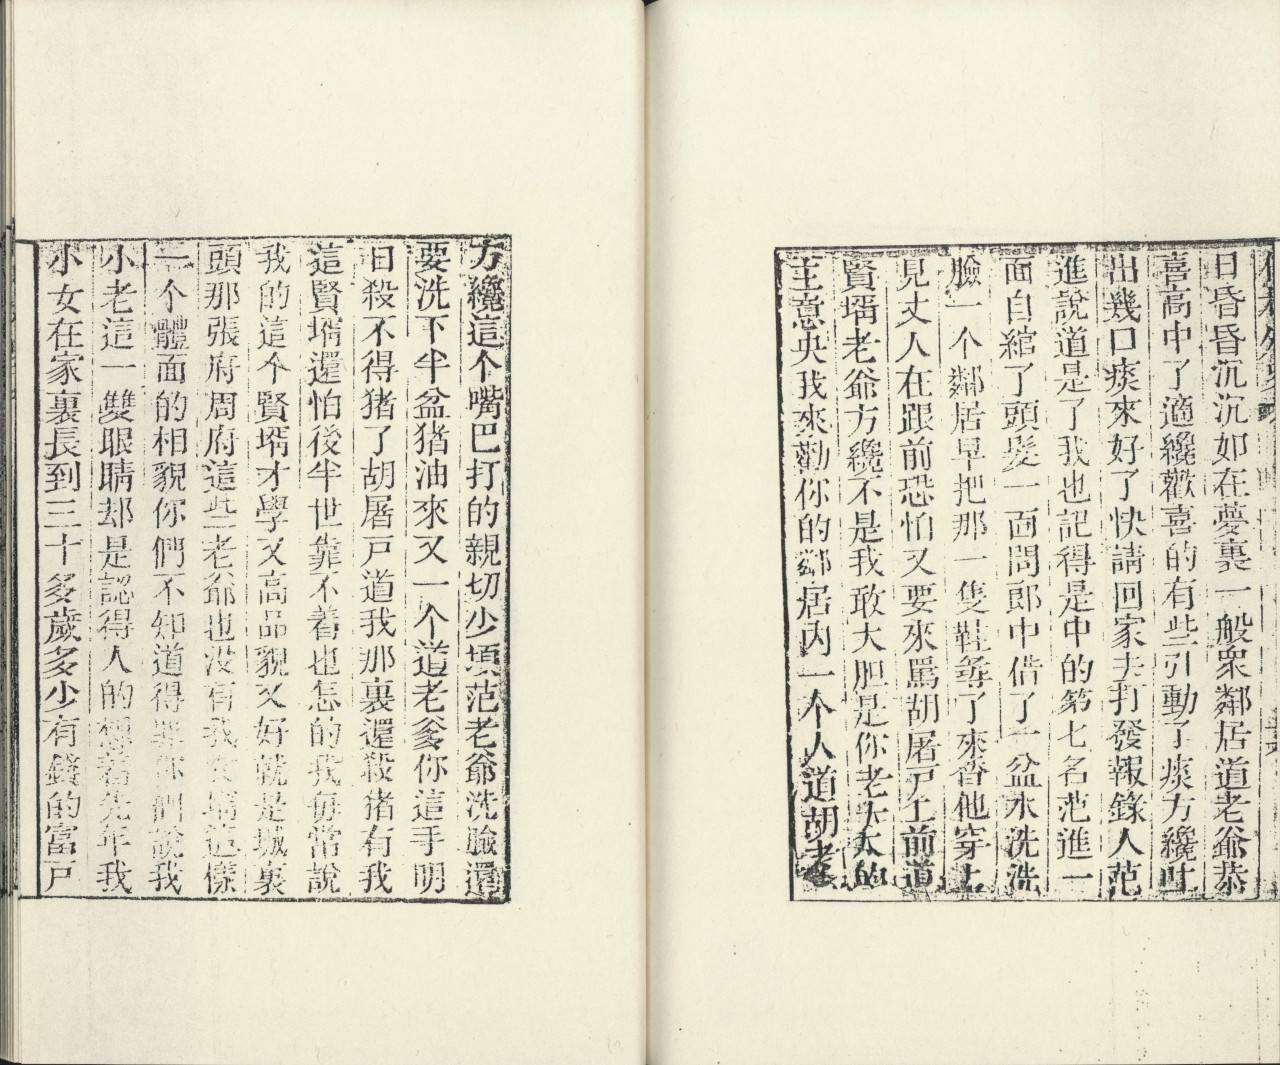 日昏昏沉沉如在夢裏一般衆鄰居道老爺恭
喜高中了適纔歡喜的有些引動了痰方纔吐
出幾口痰來好了快請回家去打發報錄人范
進說道是了我也記得是中的第七名范進一
面自綰了頭髮一面問郎中借了一盆水洗洗
臉一个鄰居早把那一隻鞋尋了來替他穿上
見丈人在跟前恐怕又要來罵胡屠戸上前道
賢壻老爺方纔不是我敢大胆是你老太太的
主意央我來勸你的鄰居内一个人道胡老
方纔這个嘴巴打的親切少頃范老爺洗臉還
要洗下半盆猪油來又一个道老爹你這手明
日殺不得猪了胡屠戸道我那裏還殺猪有我
這賢壻還怕後半世靠不着也怎的我每常說
我的這个賢壻才學又高品貌又好就是城裏
頭那張府周府這些老爺也没有我女壻這樣
一个體面的相貌你們不知道得罪你們說我
小老這一雙眼睛却是認得人的想着先年我
小女在家裏長到三十多歲多少有錢的富戸